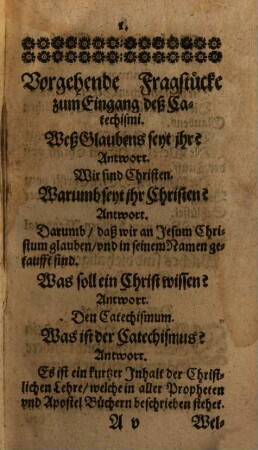 1.
Vorgehende Fragstücke
zum Eingang deß Ca-
techismi.
Weß Glaubens seyt jhr?
Antwort.
Wir sind Christen.
Warumb seyt jhr Christen?
Antwort.
Darumb / daß wir an Jesum Chri-
stum glauben / vnd in seinem Namen ge-
taufft sind.
Was soll ein Christ wissen?
Antwort.
Den Catechismum.
Was ist der Catechismus?
Antwort.
Es ist ein kurtzer Inhalt der Christ-
lichen Lehre / welche in aller Propheten
vnd Apostel Büchern beschrieben stehet.
A v Wel-